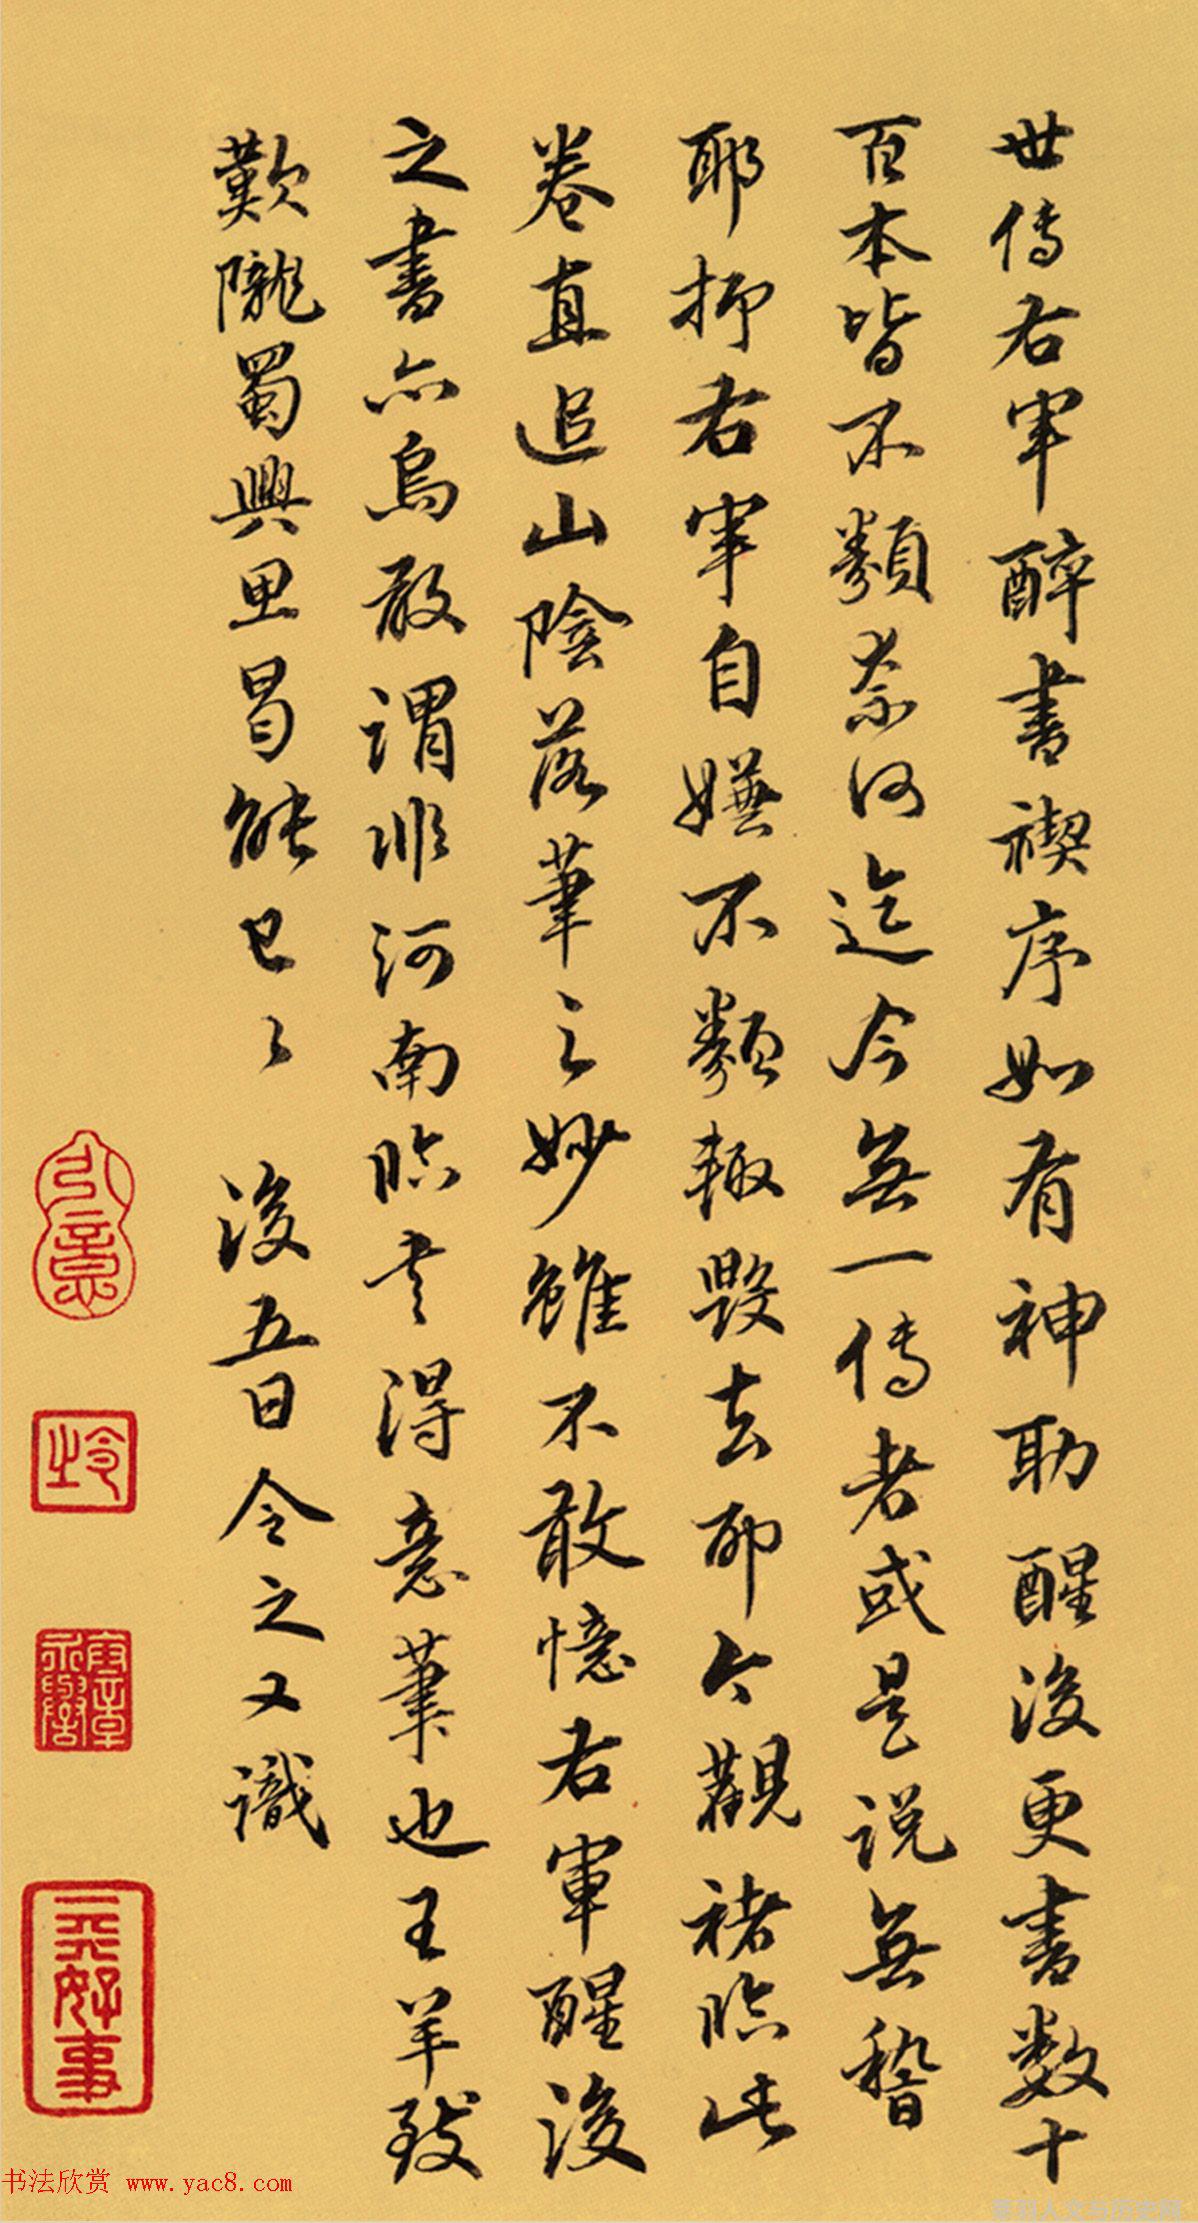 世傳右軍醉書禊序如有神助醒後更書數十
百本皆不類奈何迄今無一傳者或是說無稽
耶抑右軍自嫌不類輙毀去耶今觀褚臨此
卷直追山陰落筆之妙雖不敢憶右軍醒後
之書亦烏敢謂非河南臨書得意筆也王羊致
歎隴蜀興思曷能已〻 後五日令之又識
书法欣赏 www.yac8.com